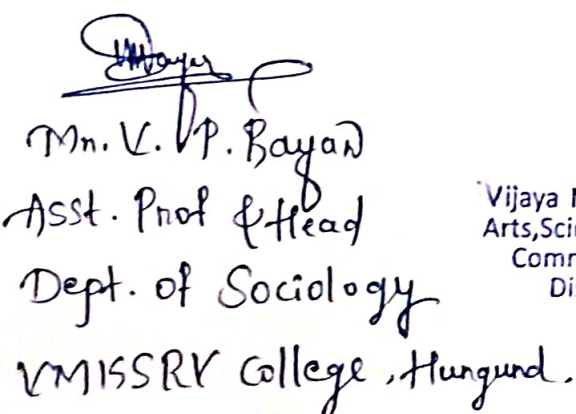 Mr. V. P. Bayan
Asst. Prof & Head
Dept. of Sociology
VMISSRV College, Hungund.
Vijaya
Arts,Sci
Comm
Di